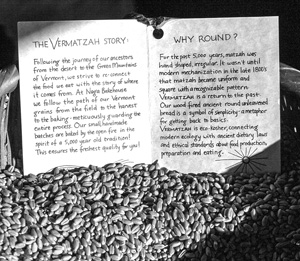 THE VERMATZAH STORY:
Following the journey of our ancestors
from the desert to the Green Mountains
of Vermont, we strive to re-connect
the food we eat with the story of where
it comes from. At Naga Bakehouse
we follow the path of our Vermont
grains from the field to the harvest
to the baking - meticulously guarding the
entire process. Our small, handmade
batches are baked by the open fire in the
spirit of a 5,000 year old tradition!
This ensures the freshest quality for you!
WHY ROUND?
For the past 5,000 years, matzah was
hand shaped, irregular. It wasn't until
modern mechanization in the late 1800's
that matzah became uniform and
square with a recognizable pattern.
VERMATZAH is a return to the past.
Our wood fired ancient round unleavened
bread is a symbol of simplicity - a metaphor
for getting back to basics.
VERMATZAH is eco-kosher, connecting
modern ecology with ancient dietary laws
and ethical standards about food production,
preparation and eating.